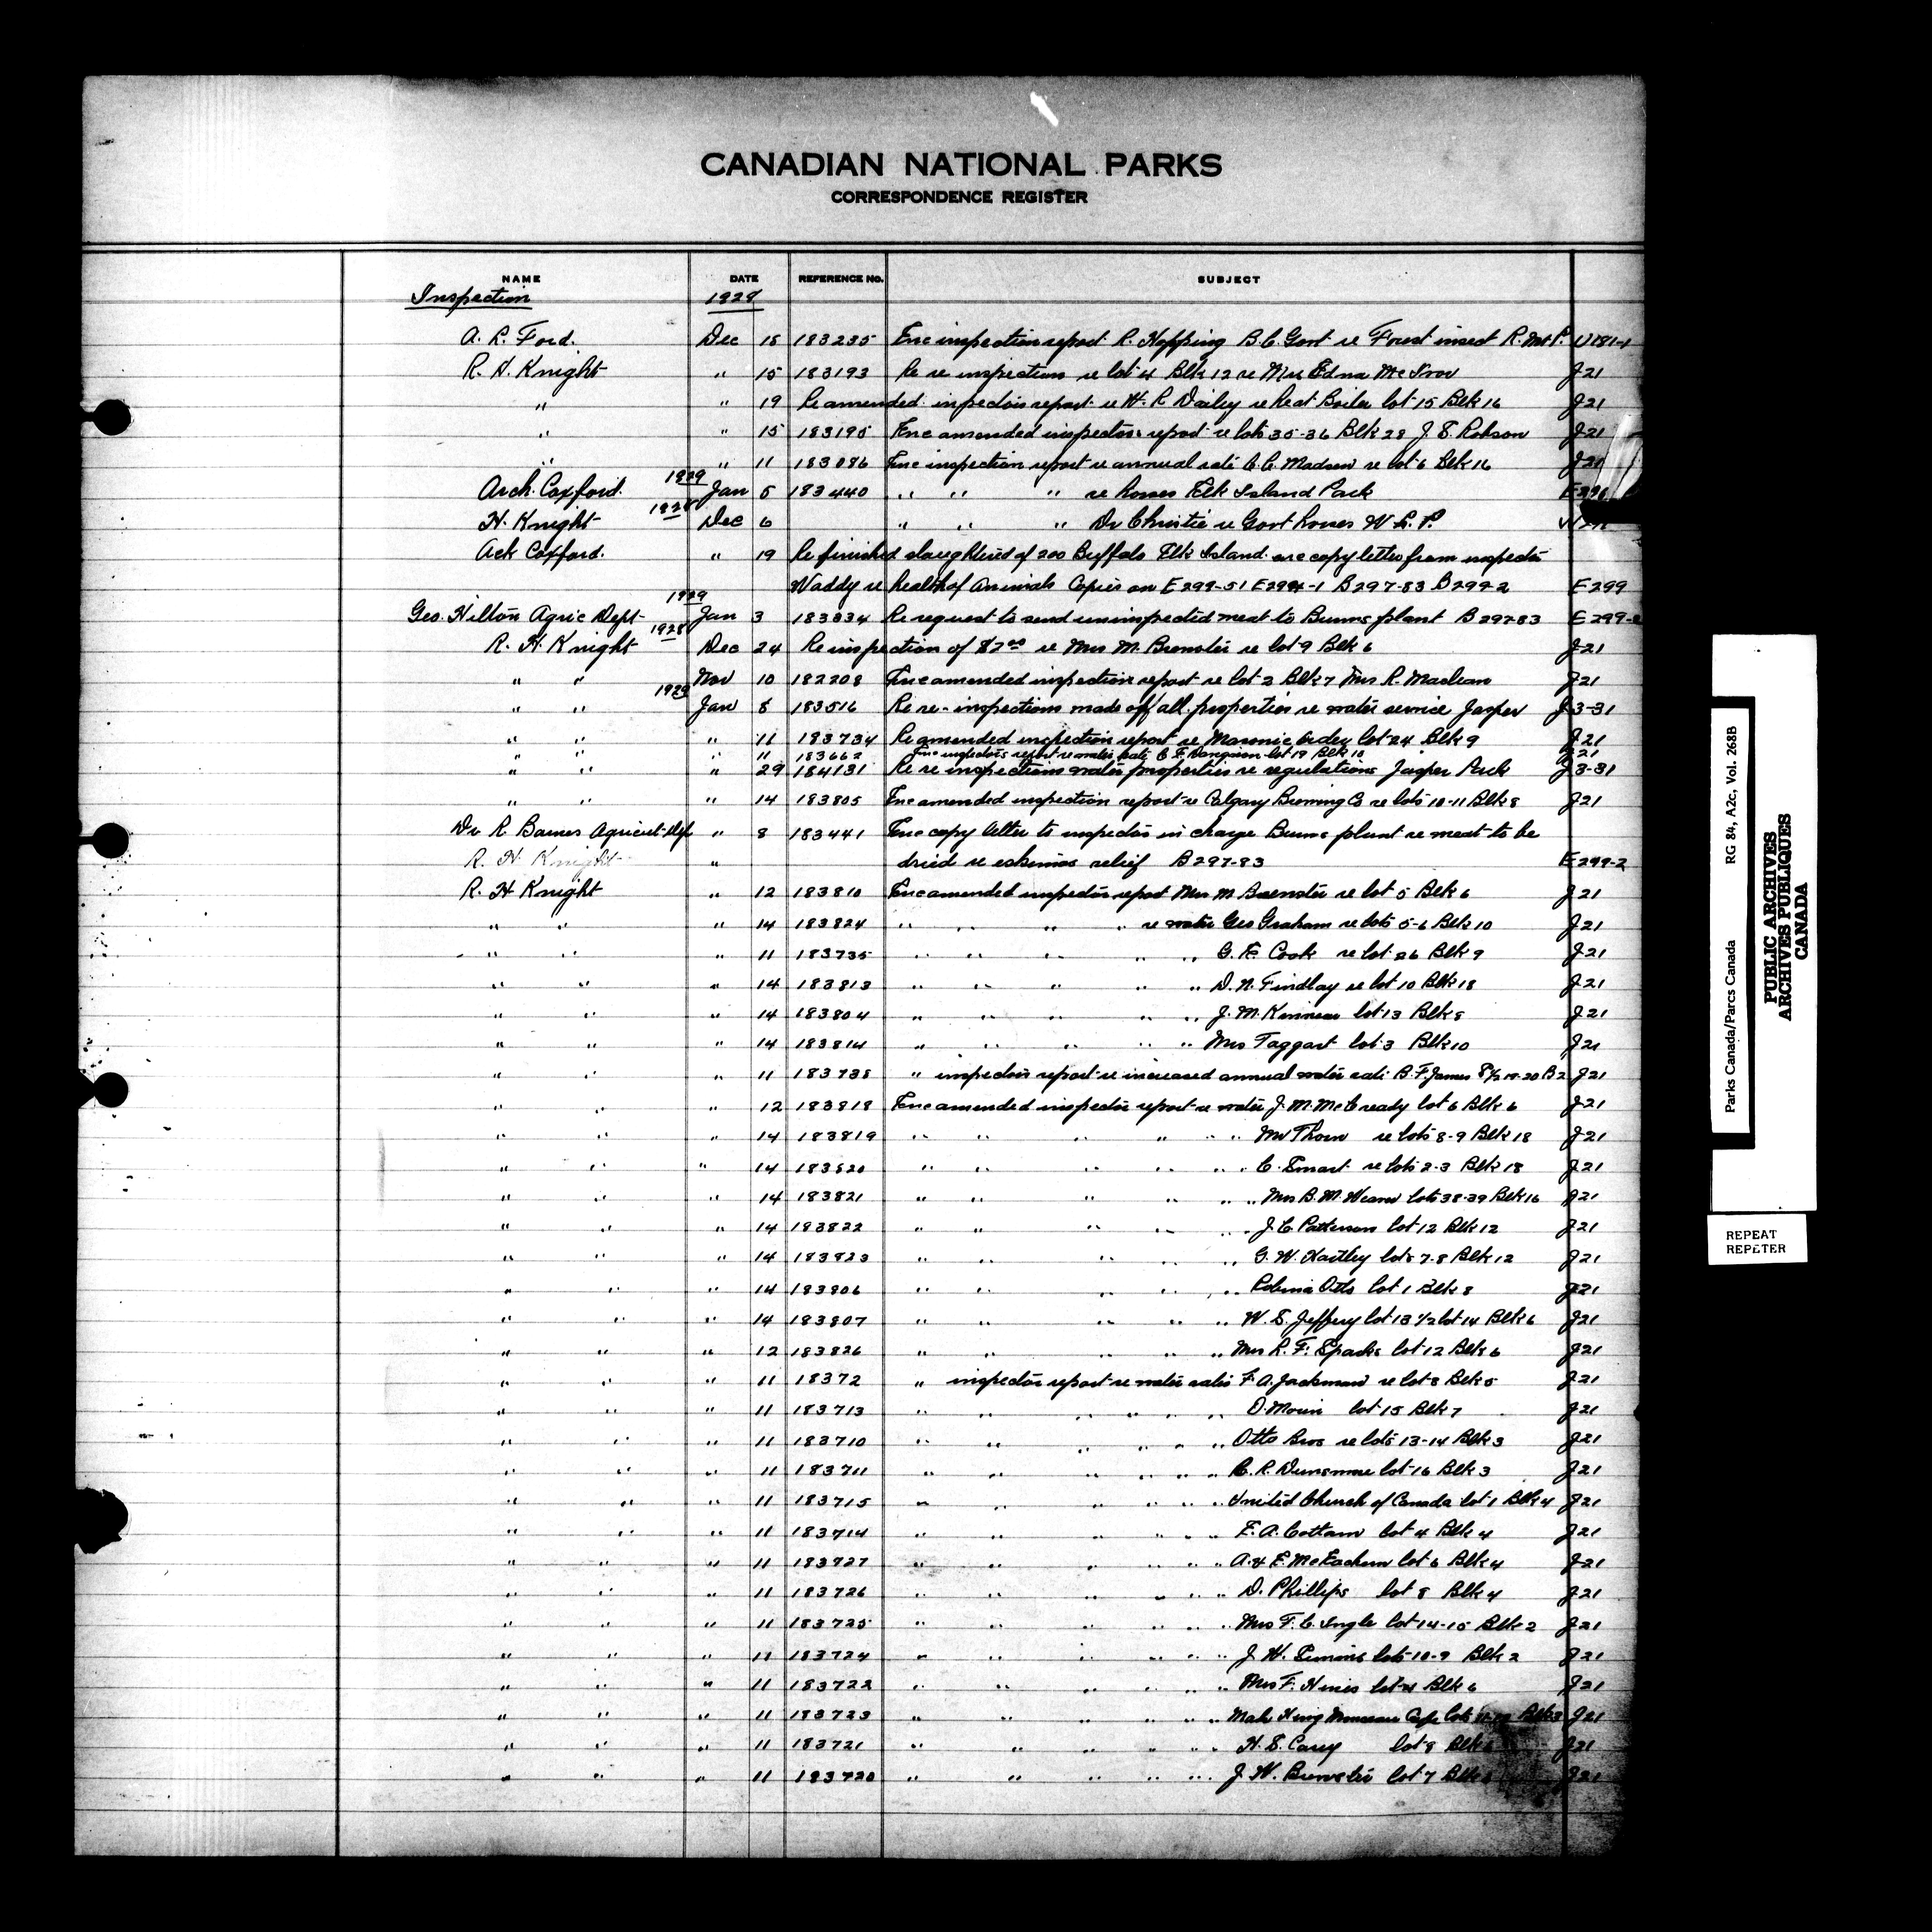 CANADIAN NATIONAL PARKS
CORRESPONDENCE REGISTER
NAME DATE REFERENCE NO. SUBJECT
Inspection 1928
A. R. Ford. Dec 15 183235 Enc inspection report R. Hopping B.C. Govt re Forest insect R.Mt.P. U181-1
R. H. Knight " 15 183193 Re re inspection re lot 4 Blk 12 re Mrs Edna J21
" " 19 Re amended inspectors report re H. R Dailey re Heat Boiler lot 15 Blk 16 J21
" " 15 183195 Enc amended inspectors report re lots 35-36 Blk 28 J. S. Robson J21
" " 11 183086 Enc inspection report re annual rate C. C. Madsen re lot 6 Blk 16 J21
Arch. Coxford. 1929 Jan 5 183440 " " " re horses Elk Island Park
H. Knight 1928 Dec 6 " " " Dr Christie re Govt horses W. L. P.
Ack Coxford. " 19 Re finished slaughtered of 200 Buffalo Elk Island enc copy letter from inspector
Waddy re health of Animals Copies on E299-51 E299-1 B297-83 B299-2 E299
Geo. Hilton Agric Dept 1929 Jan 3 183334 Re request to send uninspected meat to Burns plant B297-83 E299-2
R. H. Knight 1928 Dec 24 Re inspection of $2.00 re Mrs M. Brewster re lot 9 Blk 6 J21
" " Nov 10 182208 Enc amended inspection report re lot 2 Blk 7 Mrs R. Maclean J21
" " 1929 Jan 8 183516 Re re-inspections made off all properties re water service Jasper J3-31
" " " 11 183734 Re amended inspection report re Masonic Order lot 24 Blk 9 J21
" 11 183662 Enc inspectors report re water rate C. F. lot 19 Blk 10 J21
" " " 29 184131 Re re inspections water properties re regulations Jasper Park J3-31
" " " 14 183805 Enc amended inspection report re Calgary Brewing Co re lots 10-11 Blk 8 J21
Dr R Barnes Agricul-Dep " 8 183441 Enc copy letter to inspector in charge Burns plant re meat to be
R. H. Knight " dried re eskimos relief B297-83 E299-2
R. H Knight " 12 183810 Enc amended inspector report Mrs M Brewster re lot 5 Blk 6 J21
" " " 14 183824 " " " " re water Geo Graham re lots 5-6 Blk 10 J21
" " " 11 183735 " " " " " G. E Cook re lot 26 Blk 9 J21
" " " 14 183813 " " " " " D. N. Findlay re lot 10 Blk 18 J21
" " " 14 183804 " " " " " J. M. Kinnear lot 13 Blk 8 J21
" " " 14 183814 " " " " " Mrs Taggart lot 3 Blk 10 J21
" " " 11 183738 " inspectors report re increased annual water rate B. F. James S½ 19-20 B2 J21
" " " 12 183818 Enc amended inspector report re water J. M. McCready lot 6 Blk 6 J21
" " " 14 183819 " " " " " " Mr Thorn re lots 8-9 Blk 18 J21
" " " 14 183820 " " " " " " C. Smart re lots 2-3 Blk 18 J21
" " " 14 183821 " " " " " Mrs B. M. Weaver lots 38-39 Blk 16 J21
" " " 14 183822 " " " " " J. C Patterson lot 12 Blk 12 J21
" " " 14 183823 " " " " " G. W. Hartley lots 7-8 Blk 12 J21
" " " 14 183806 " " " " " Otto lot 1 Blk 8 J21
" " " 14 183807 " " " " " W. S. Jeffery lot 13 ½ lot 14 Blk 6 J21
" " " 12 183826 " " " " " Mrs R. F. Sparks lot 12 Blk 6 J21
" " " 11 18372 " inspector report re water rates F. A. Jackman re lot 8 Blk 5 J21
" " " 11 183713 " " " " " " D. Morin lot 15 Blk 7 J21
" " " 11 183710 " " " " " " Otto Bros re lots 13-14 Blk 3 J21
" " " 11 183711 " " " " " " C. R. Dunsmore lot 16 Blk 3 J21
" " " 11 183715 " " " " " " United Church of Canada lot 1 Blk 4 J21
" " " 11 183714 " " " " " " E. A. Cottam lot 4 Blk 4 J21
" " " 11 183727 " " " " " " A. & E. McEachern lot 6 Blk 4 J21
" " " 11 183726 " " " " " " D. Phillips lot 8 Blk 4 J21
" " " 11 183725 " " " " " " Mrs F. C. Ingle lot 14-15 Blk 2 J21
" " " 11 183724 " " " " " " J. H. Simins lots 10-9 Blk 2 J21
" " " 11 183722 " " " " " " Mrs F. Hines lot 4 Blk 6 J21
" " " 11 183723 " " " " " " Mah King Cafe lots J21
" " " 11 183721 " " " " " " H. S. Carey lot 8 Blk J21
" " " 11 183720 " " " " " " J. W. Brewster lot 7 Blk J21
Parks Canada/Parcs Canada RG 84, A2c, Vol. 268B
PUBLIC ARCHIVES
ARCHIVES PUBLIQUES
CANADA
REPEAT
REPETER